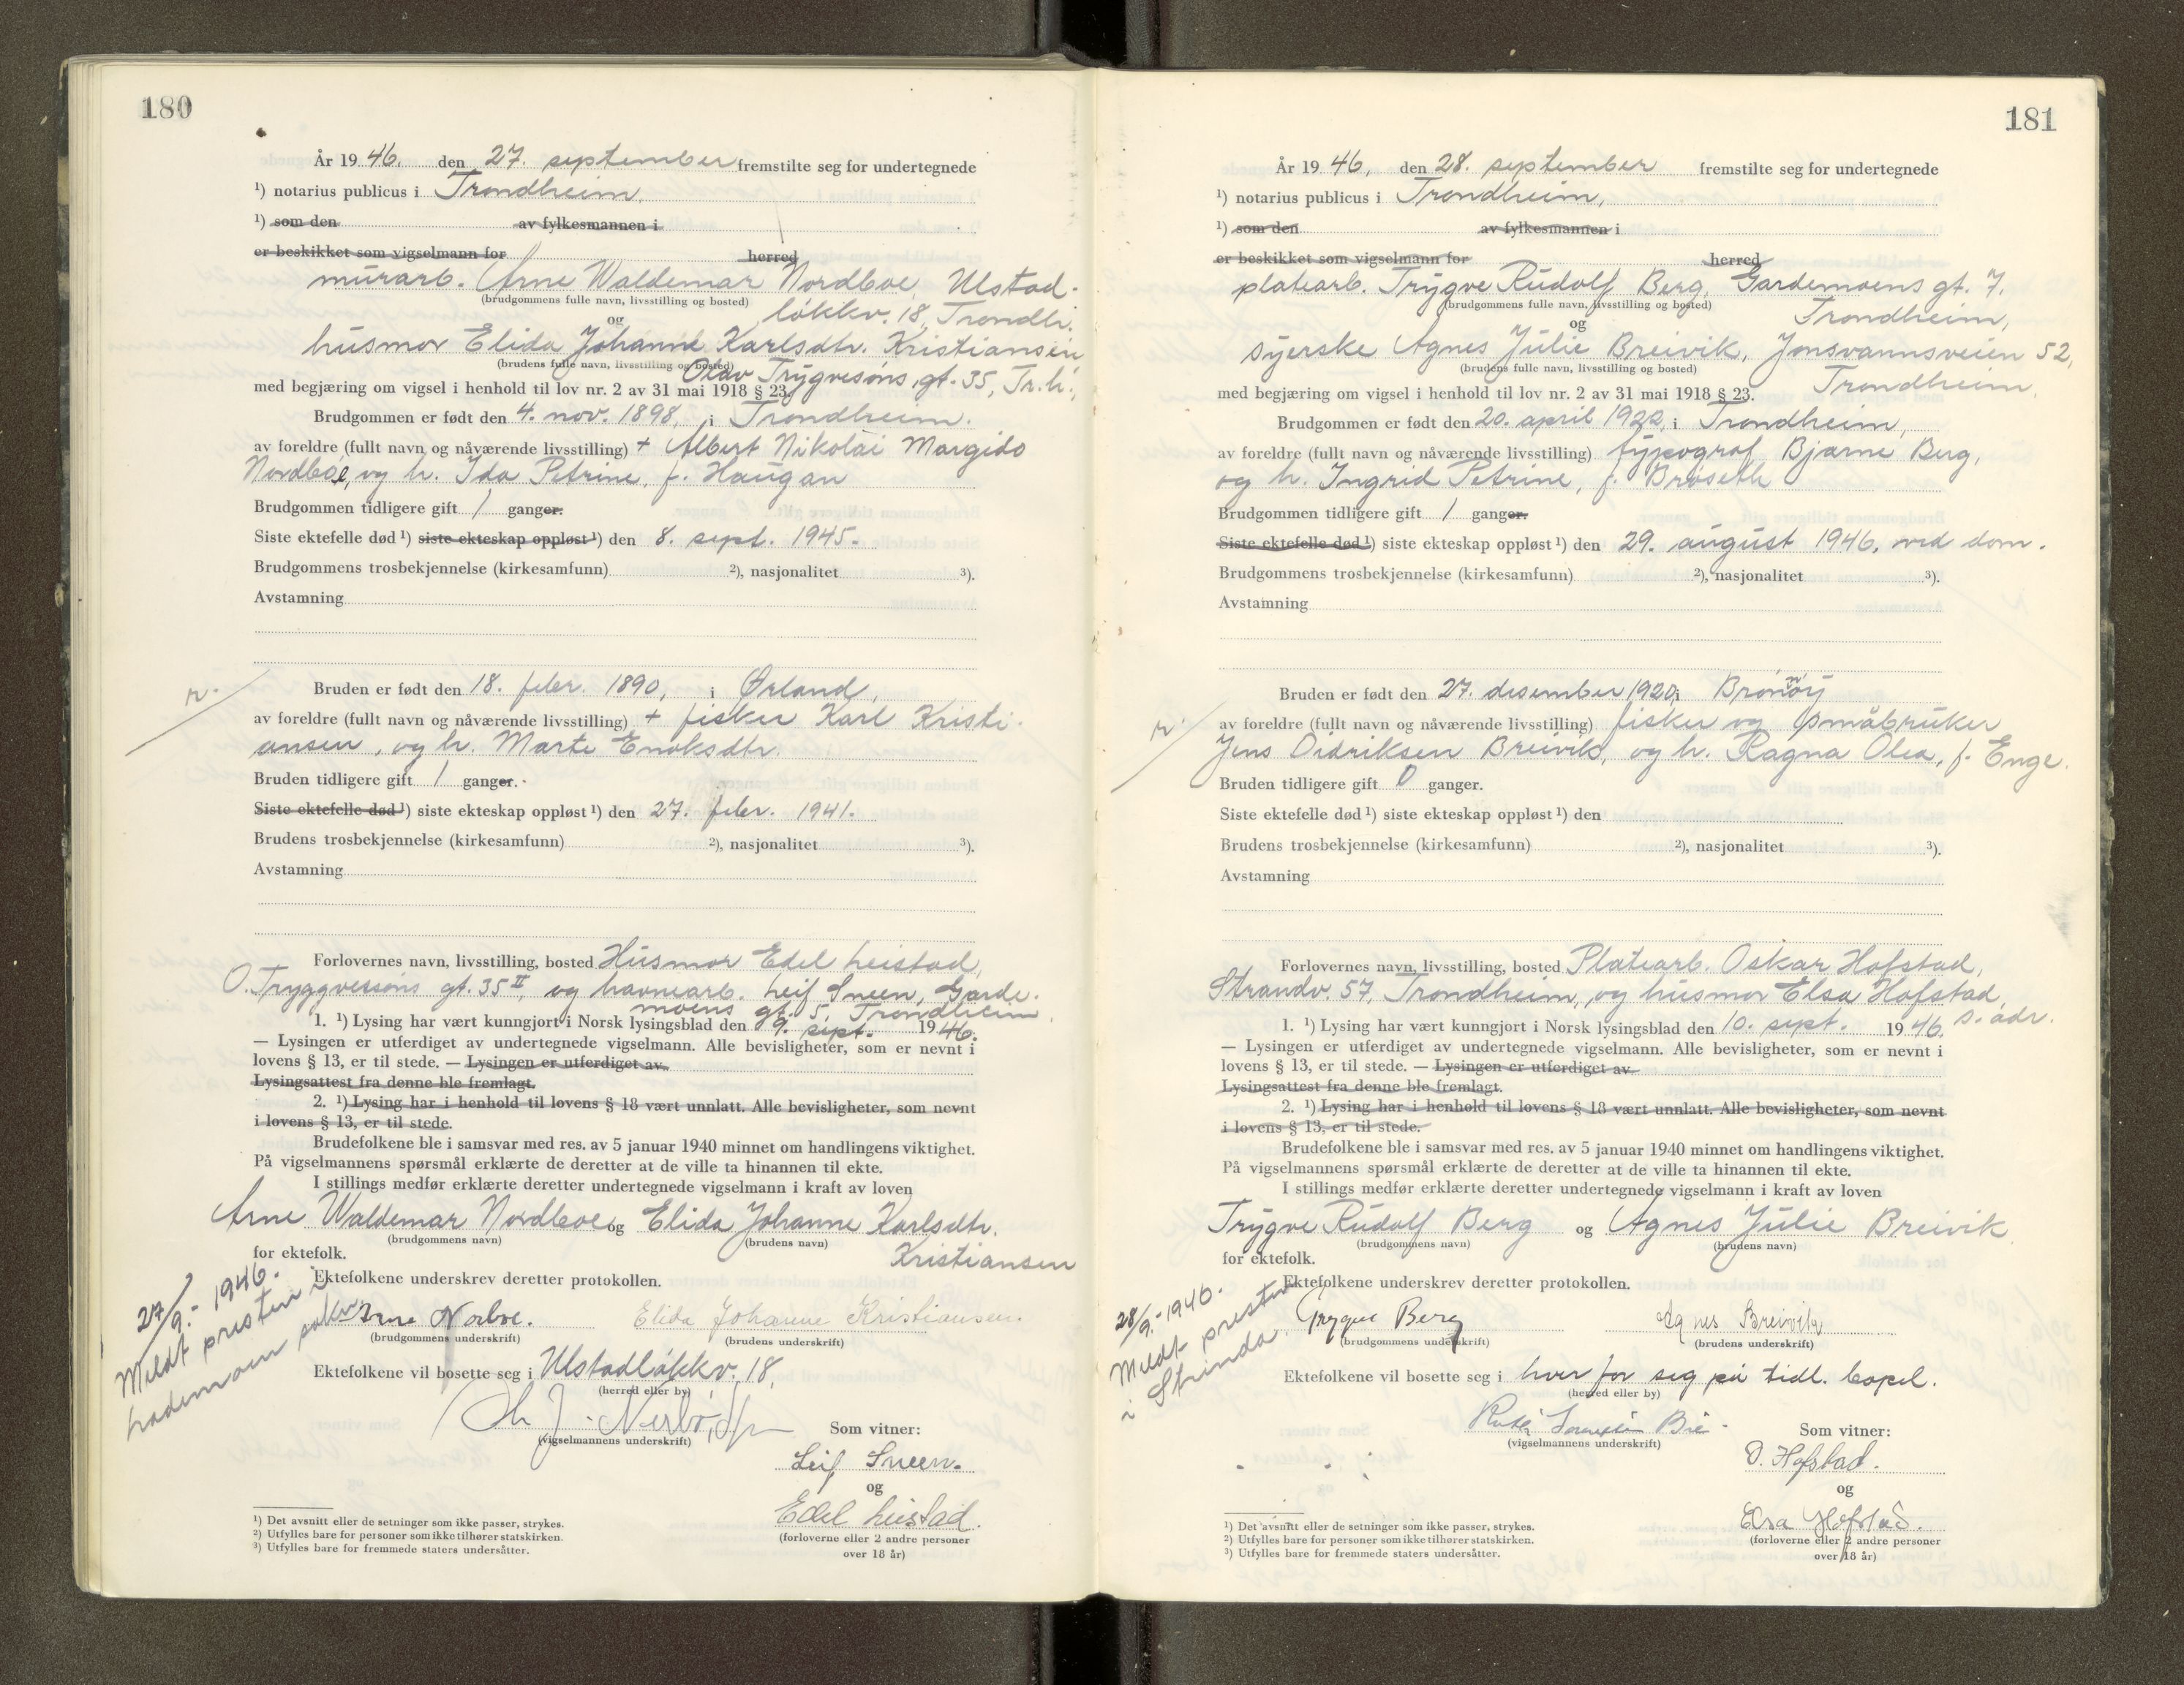 180
År 1946. den 27. september fremstilte seg for undertegnede
¹) notarius publicus i Trondheim.
¹) som den av fylkesmannen i
er beskikket som vigselmann for herred
murarb. Arne Waldemar Nordboe, Ulstad-
(brudgommens fulle navn, livsstilling og bosted)
løkkv. 18, Trondh.
og
husmor Elida Johanne Karlsdtr. Kristiansen
(brudens fulle navn, livsstilling og bosted)
Olav Trygvesøns gt. 35, Tr.h.,
med begjæring om vigsel i henhold til lov nr. 2 av 31 mai 1918 § 23.
Brudgommen er født den 4. nov. 1898, i Trondheim.
av foreldre (fullt navn og nåværende livsstilling) + Albert Nikolai Margido
Nordboe, og h. Ida Petrine, f. Haugan
Brudgommen tidligere gift 1 ganger.
Siste ektefelle død ¹) siste ekteskap oppløst ¹) den 8. sept. 1945.
Brudgommens trosbekjennelse (kirkesamfunn) ²), nasjonalitet ³).
Avstamning
Bruden er født den 18. febr. 1890, i Ørland,
av foreldre (fullt navn og nåværende livsstilling) + fisker Karl Kristi-
ansen, og h. Marte Enoksdtr.
Bruden tidligere gift 1 ganger.
Siste ektefelle død ¹) siste ekteskap oppløst ¹) den 27. febr. 1941.
Brudens trosbekjennelse (kirkesamfunn) ²), nasjonalitet ³).
Avstamning
Forlovernes navn, livsstilling, bosted Husmor Edel Leistad,
O. Tryggvessøns gt. 35 II, og havnearb. Leif Sneen, Garde-
moens gt. 5, Trondheim.
1. ¹) Lysing har vært kunngjort i Norsk lysingsblad den 9. sept. 1946.
— Lysingen er utferdiget av undertegnede vigselmann. Alle bevisligheter, som er nevnt i
lovens § 13, er til stede. — Lysingen er utferdiget av
Lysingsattest fra denne ble fremlagt.
2. ¹) Lysing har i henhold til lovens § 18 vært unnlatt. Alle bevisligheter, som nevnt
i lovens § 13, er til stede.
Brudefolkene ble i samsvar med res. av 5 januar 1940 minnet om handlingens viktighet.
På vigselmannens spørsmål erklærte de deretter at de ville ta hinannen til ekte.
I stillings medfør erklærte deretter undertegnede vigselmann i kraft av loven
Arne Waldemar Nordboe og Elida Johanne Karlsdtr.
(brudgommens navn) (brudens navn)
Kristiansen
for ektefolk.
Ektefolkene underskrev deretter protokollen.
27/9.- 1946.
Meldt presten i
Lademoen sokn
Arne Norboe. Elida Johanne Kristiansen.
(brudgommens underskrift) (brudens underskrift)
Ektefolkene vil bosette seg i Ulstadløkkv. 18,
(herred eller by)
(vigselmannens underskrift)
Som vitner:
Leif Sneen.
og
Edel Leistad.
(forloverne eller 2 andre personer
over 18 år)
¹) Det avsnitt eller de setninger som ikke passer, strykes.
²) Utfylles bare for personer som ikke tilhører statskirken.
³) Utfylles bare for fremmede staters undersåtter.
181
År 1946, den 28. september fremstilte seg for undertegnede
¹) notarius publicus i Trondheim,
¹) som den av fylkesmannen i
er beskikket som vigselmann for herred
platearb. Trygve Rudolf Berg, Gardemoens gt. 7,
(brudgommens fulle navn, livsstilling og bosted)
Trondheim,
og
syerske Agnes Julie Breivik, Jonsvannsveien 52,
(brudens fulle navn, livsstilling og bosted)
Trondheim,
med begjæring om vigsel i henhold til lov nr. 2 av 31 mai 1918 § 23.
Brudgommen er født den 20. april 1922, i Trondheim,
av foreldre (fullt navn og nåværende livsstilling) typograf Bjarne Berg,
og h. Ingrid Petrine, f. Brøseth
Brudgommen tidligere gift 1 ganger.
Siste ektefelle død ¹) siste ekteskap oppløst ¹) den 29. august 1946, ved dom.
Brudgommens trosbekjennelse (kirkesamfunn) ²), nasjonalitet ³).
Avstamning
Bruden er født den 27. desember 1920, i Brønnøy
av foreldre (fullt navn og nåværende livsstilling) fisker og småbruker
Jens Didriksen Breivik, og h. Ragna Olea, f. Enge.
Bruden tidligere gift 0 ganger.
Siste ektefelle død ¹) siste ekteskap oppløst ¹) den
Brudens trosbekjennelse (kirkesamfunn) ²), nasjonalitet ³).
Avstamning
Forlovernes navn, livsstilling, bosted Platearb. Oskar Hofstad,
Strandv. 57, Trondheim, og husmor Elsa Hofstad,
s. adr.
1. ¹) Lysing har vært kunngjort i Norsk lysingsblad den 10. sept. 1946.
— Lysingen er utferdiget av undertegnede vigselmann. Alle bevisligheter, som er nevnt i
lovens § 13, er til stede. — Lysingen er utferdiget av
Lysingsattest fra denne ble fremlagt.
2. ¹) Lysing har i henhold til lovens § 18 vært unnlatt. Alle bevisligheter, som nevnt
i lovens § 13, er til stede.
Brudefolkene ble i samsvar med res. av 5 januar 1940 minnet om handlingens viktighet.
På vigselmannens spørsmål erklærte de deretter at de ville ta hinannen til ekte.
I stillings medfør erklærte deretter undertegnede vigselmann i kraft av loven
Trygve Rudolf Berg og Agnes Julie Breivik
(brudgommens navn) (brudens navn)
for ektefolk.
Ektefolkene underskrev deretter protokollen.
28/9.-1946.
Meldt presten
i Strinda
Trygve Berg Agnes Breivik
(brudgommens underskrift) (brudens underskrift)
Ektefolkene vil bosette seg i hver for seg på tidl. bopel.
(herred eller by)
(vigselmannens underskrift)
Som vitner:
O. Hofstad.
og
Elsa Hofstad.
(forloverne eller 2 andre personer
over 18 år)
¹) Det avsnitt eller de setninger som ikke passer, strykes.
²) Utfylles bare for personer som ikke tilhører statskirken.
³) Utfylles bare for fremmede staters undersåtter.